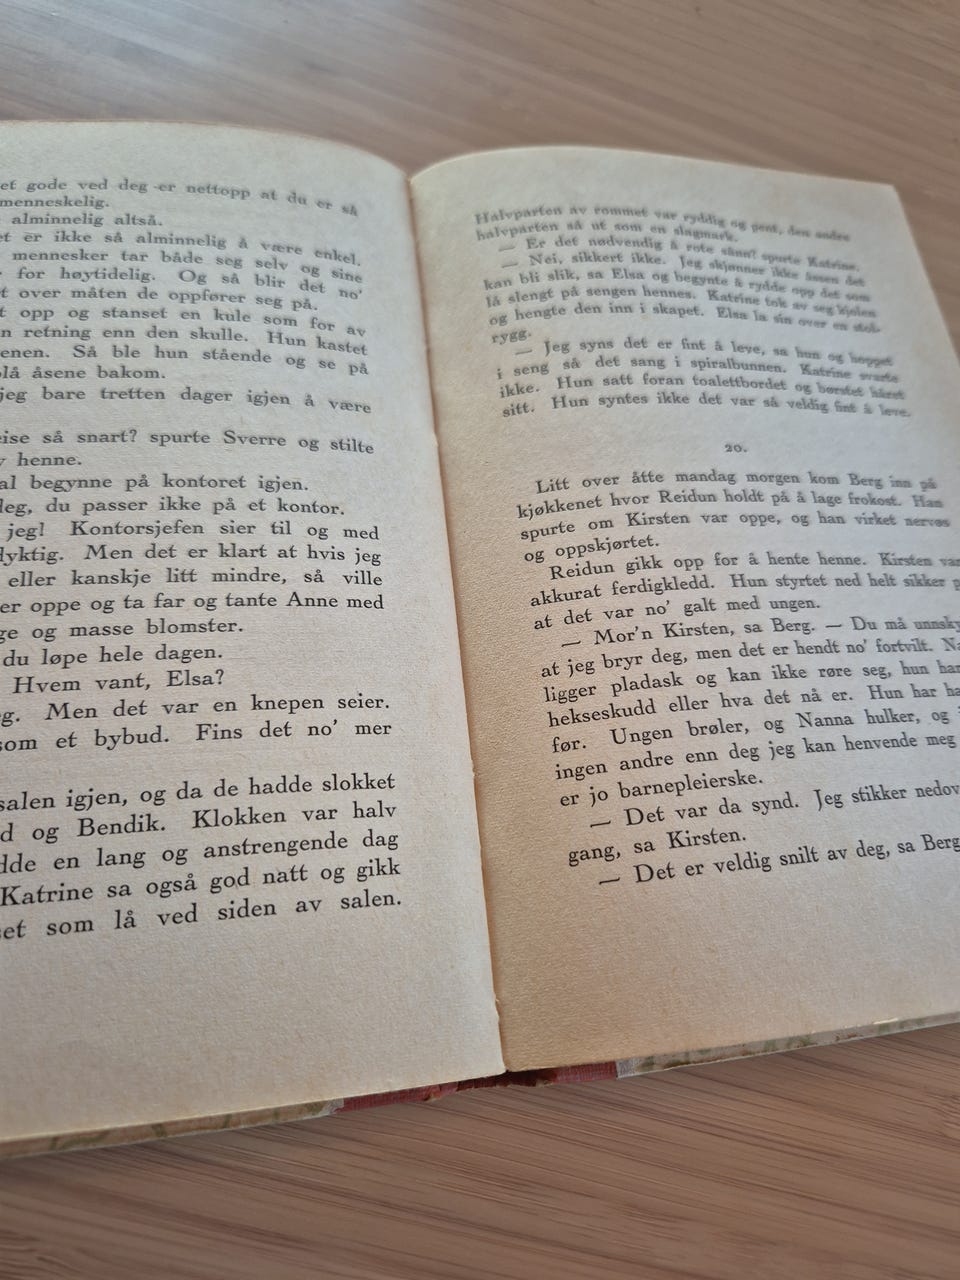 et gode ved deg er nettopp at du er så
menneskelig.
alminnelig altså.
et er ikke så alminnelig å være enkel.
mennesker tar både seg selv og sine
for høytidelig. Og så blir det no'
t over måten de oppfører seg på.
t opp og stanset en kule som for av
n retning enn den skulle. Hun kastet
enen. Så ble hun stående og se på
lå åsene bakom.
jeg bare tretten dager igjen å være
eise så snart? spurte Sverre og stilte
henne.
al begynne på kontoret igjen.
deg, du passer ikke på et kontor.
jeg! Kontorsjefen sier til og med
dyktig. Men det er klart at hvis jeg
eller kanskje litt mindre, så ville
er oppe og ta far og tante Anne med
ge og masse blomster.
du løpe hele dagen.
Hvem vant, Elsa?
eg. Men det var en knepen seier.
som et bybud. Fins det no' mer
salen igjen, og da de hadde slokket
d og Bendik. Klokken var halv
dde en lang og anstrengende dag
Katrine sa også god natt og gikk
et som lå ved siden av salen.
Halvparten av rommet var ryddig og pent, den andre
halvparten så ut som en slagmark.
— Er det nødvendig å rote sånn? spurte Katrine.
— Nei, sikkert ikke. Jeg skjønner ikke åssen det
kan bli slik, sa Elsa og begynte å rydde opp det som
lå slengt på sengen hennes. Katrine tok av seg kjolen
og hengte den inn i skapet. Elsa la sin over en stol-
rygg.
— Jeg syns det er fint å leve, sa hun og hoppet
i seng så det sang i spiralbunnen. Katrine svarte
ikke. Hun satt foran toalettbordet og børstet håret
sitt. Hun syntes ikke det var så veldig fint å leve.
20.
Litt over åtte mandag morgen kom Berg inn på
kjøkkenet hvor Reidun holdt på å lage frokost. Han
spurte om Kirsten var oppe, og han virket nervøs
og oppskjørtet.
Reidun gikk opp for å hente henne. Kirsten var
akkurat ferdigkledd. Hun styrtet ned helt sikker p
at det var no' galt med ungen.
— Mor'n Kirsten, sa Berg. — Du må unnsky
at jeg bryr deg, men det er hendt no' fortvilt. Na
ligger pladask og kan ikke røre seg, hun har
hekseskudd eller hva det nå er. Hun har ha
før. Ungen brøler, og Nanna hulker, og
ingen andre enn deg jeg kan henvende meg
er jo barnepleierske.
— Det var da synd. Jeg stikker nedov
gang, sa Kirsten.
— Det er veldig snilt av deg, sa Berg